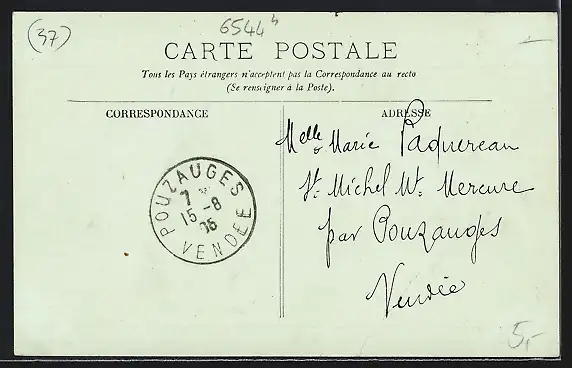 (37)
6544 h
CARTE POSTALE
Tous les Pays étrangers n'acceptent pas la Correspondance au recto
(Se renseigner à la Poste).
CORRESPONDANCE
ADRESSE
Melle Marie Paquereau
St. Michel Mt. Mercure
par Pouzauges
Vendée
POUZAUGES
7
15-8
05
VENDÉE
5,-